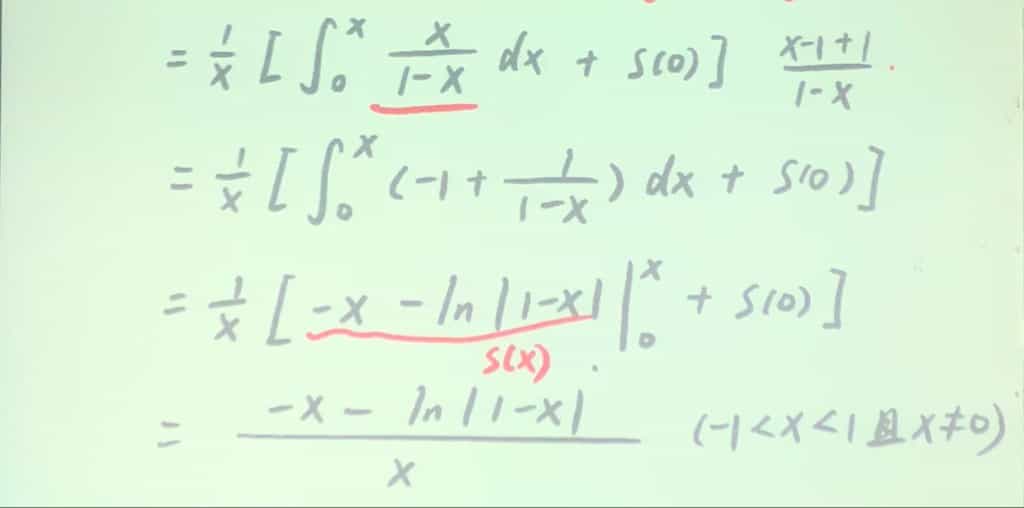 = 1/x [ ∫₀ˣ x/(1-x) dx + S(0) ] (x-1+1)/(1-x)
= 1/x [ ∫₀ˣ (-1 + 1/(1-x)) dx + S(0) ]
= 1/x [ -x - ln|1-x| |₀ˣ + S(0) ]
S(x)
= (-x - ln|1-x|)/x (-1<x<1 且 x≠0)